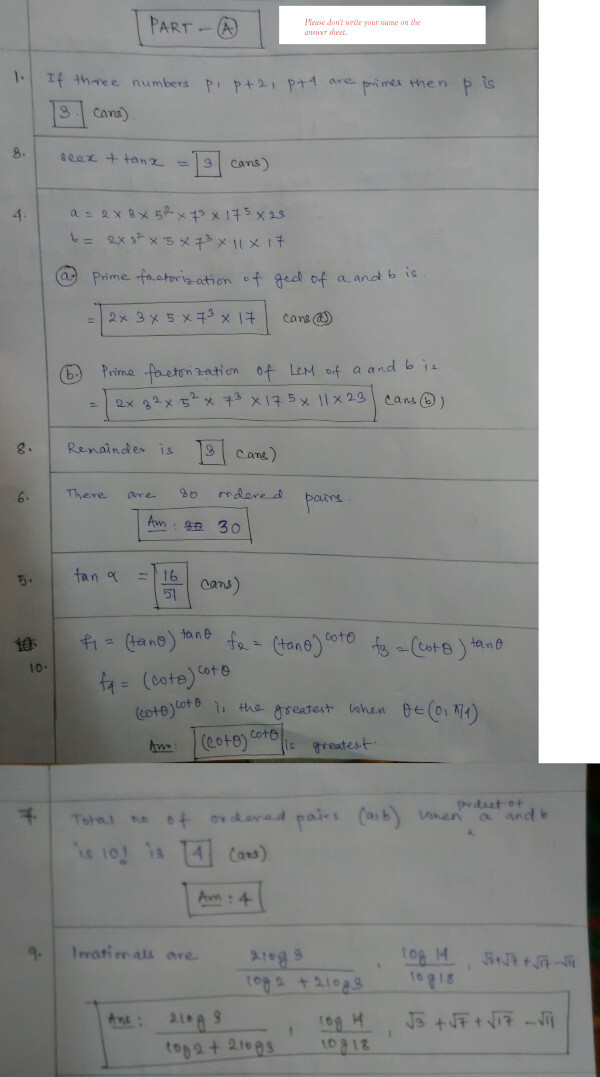 PART - A
Please don't write your name on the
answer sheet.
1. If three numbers p, p+2, p+4 are primes then p is
3. (ans)
3. secx + tanx = 3 (ans)
4. a = 2 × 3 × 5² × 7³ × 17⁵ × 23
b = 2×3² × 5 × 7³ × 11 × 17
a. Prime factorization of gcd of a and b is.
= 2 × 3 × 5 × 7³ × 17 (ans a)
b. Prime factorization of LCM of a and b is
= 2× 3² × 5² × 7³ × 17⁵ × 11 × 23 (ans b)
8. Remainder is 3 (ans)
6. There are 30 ordered pairs.
Ans : 30
5. tan α = 16/51 (ans)
10. f₁ = (tanθ)^tanθ f₂ = (tanθ)^cotθ f₃ = (cotθ)^tanθ
f₄ = (cotθ)^cotθ
(cotθ)^cotθ is the greatest when θ ∈ (0, π/4)
Ans: (cotθ)^cotθ is greatest.
7. Total no of ordered pairs (a,b) when product of a and b
is 10! is 4 (ans).
Ans : 4
9. Irrationals are 2log3/(log2 + 2log3) , log14/log18 , √3+√7+√17-√11
Ans: 2log3/(log2 + 2log3) , log14/log18 , √3 + √7 + √17 - √11